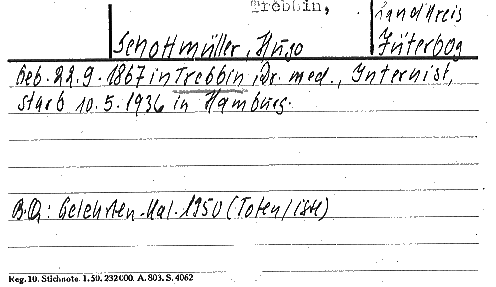 Trebbin,
Landkreis
Schottmüller, Hugo
Jüterbog
Geb. 22.9.1867 in Trebbin, Dr. med., Internist,
starb 10.5.1936 in Hamburg.
B.Q.: Gelehrten-Kal. 1950 (Totenliste)
Reg. 10. Stichnote. 1. 50. 232000. A. 803. S. 4062